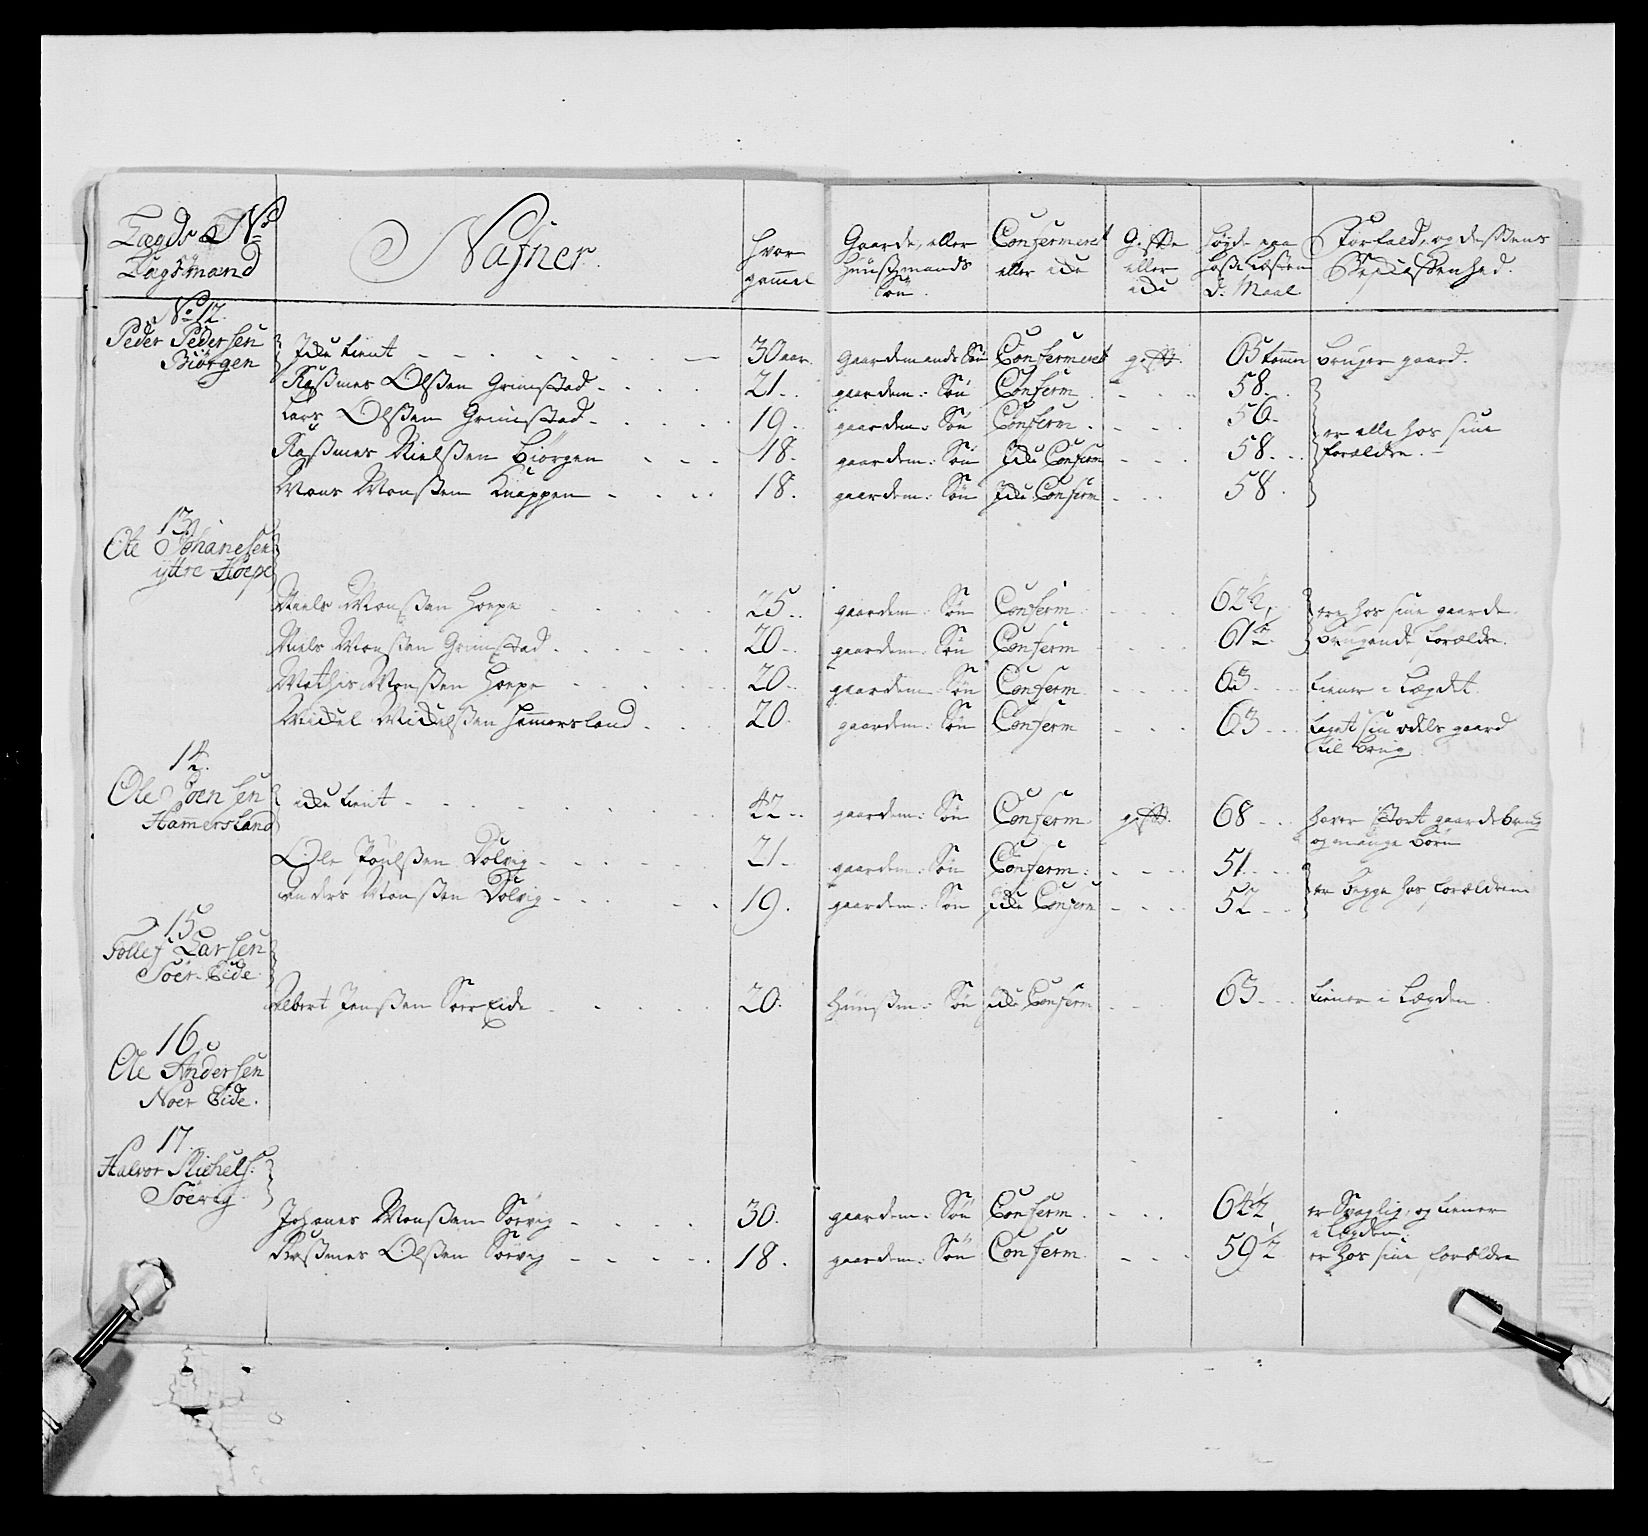 Lægds No
Lægsmand
Nafner
hvor
gammel
Gaarde, eller
Huusmands
Søn.
Confermeret
eller icke
Gifte
eller
icke
Høyde paa
D: Maal
Forfald, og dessens
Beskaffenhed.
No 12.
Peder Pedersen
Biörgen
Icke tient - - - 30 aar. Gaardmands Søn Confermeret gift. 65 tommer bruger gaard.
Rasmus Olsen Grimstad - - - 21. gaardem: Søn Conferm - - - 58.
Lars Olsen Grimstad - - - 19. gaardem: Søn Conferm - - - 56.
er alle hos sine
forældre.
Rasmus Nielsen Biørgen - - - 18. gaardem: Søn Icke Conferm - - - 58.
Mons Monsen Knappen - - - 18. gaardem: Søn Icke Conferm - - - 58.
13.
Ole Johanesen
ÿttre Hoepe
Niels Monsen Hoepe - - - 25. gaardem: Søn Conferm - - - 62 1/2, ere hos sine gaard-
Niels Monsen Grimstad - - - 20. gaardem: Søn Conferm - - - 61 1/2 brugende forældre.
Mathis Monsen Hoepe - - - 20. gaardem: Søn Conferm - - - 63 tiener i Lægdet.
Mickel Mickelsen Hammersland - - - 20. gaardem: Søn Conferm - - - 63 taget sin odels gaard
til brug.
14.
Ole Joensen
Hamersland
icke tient - - - 42. gaardem: Søn Conferm. gift. 68 haver stort gaardebrug
og mange børn
Ole Poulsen Dolvig - - - 21. gaardem: Søn Conferm: - - - 51.
er begge hos forældrene
Anders Monsen Dolvig - - - 19. gaardem: Søn icke Conferm - - - 52
15.
Tollef Larsen
Söer Eide
Albert Jensen Sør Eide - - - 20. Huusm: Søn icke Conferm - - 63 tiener i Lægden.
16.
Ole Andersen
Noer Eide.
17.
Halvor Michels:
Söevig
Johanes Monsen Søevig - - - 30. gaardem: Søn Conferm. - - - 64 1/2 er svaglig, og tiener
i Lægden.
Rasmus Olsen Søevig - - - 18. gaardem: Søn Conferm. - - - 59 1/2 er hos sine forældre